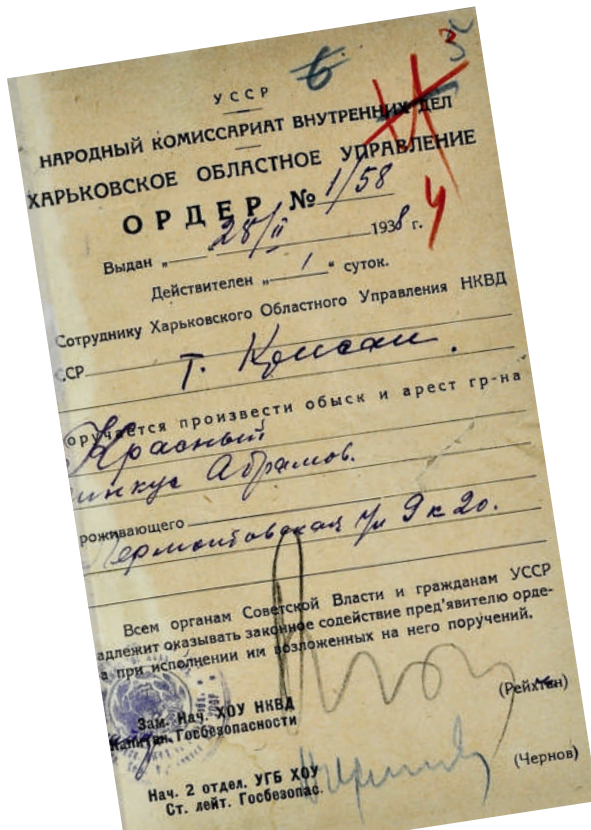 6
3
УССР
НАРОДНЫЙ КОМИССАРИАТ ВНУТРЕННИХ ДЕЛ
ХАРЬКОВСКОЕ ОБЛАСТНОЕ УПРАВЛЕНИЕ
ОРДЕР № 1/58
4
Выдан „ 28/II 1938 г.
Действителен „ 1 “ суток.
Сотруднику Харьковского Областного Управления НКВД
ССР
т.
оручается произвести обыск и арест гр-на
Красный
инкус Абрамов.
роживающего
Лермонтовская ул 9 к 20.
Всем органам Советской Власти и гражданам УССР
адлежит оказывать законное содействие пред'явителю орде-
а при исполнении им возложенных на него поручений.
Зам. Нач. ХОУ НКВД
Капитан Госбезопасности
(Рейхтан)
Нач. 2 отдел. УГБ ХОУ
Ст. лейт. Госбезопас.
(Чернов)